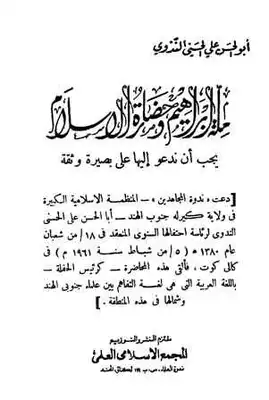 أبو الحسن علي الحسني الندوي
ملة إبراهيم وحضارة الإسلام
يجب أن ندعو إليها على بصيرة وثقة
[ دعت « ندوة المجاهدين » — المنظمة الاسلامية الكبيرة
فى ولاية كيرله جنوب الهند — أبا الحسن على الحسنى
الندوى لرئاسة احتفالها السنوى المنعقد فى ١٨/ من شعبان
عام ١٣٨٠ ه ( ٥/ من شباط سنة ١٩٦١ م ) فى
كالى كوت ، فألقى هذه المحاضرة — كرئيس الحفلة —
باللغة العربية التى هى لغة التفاهم بين علماء جنوبى الهند
وشمالها فى هذه المنطقة . ]
ملتزم النشر والتوزيع
المجمع الاسلامى العلمى
ندوة العلماء ص.ب ١١٩ لكهنؤ الهند